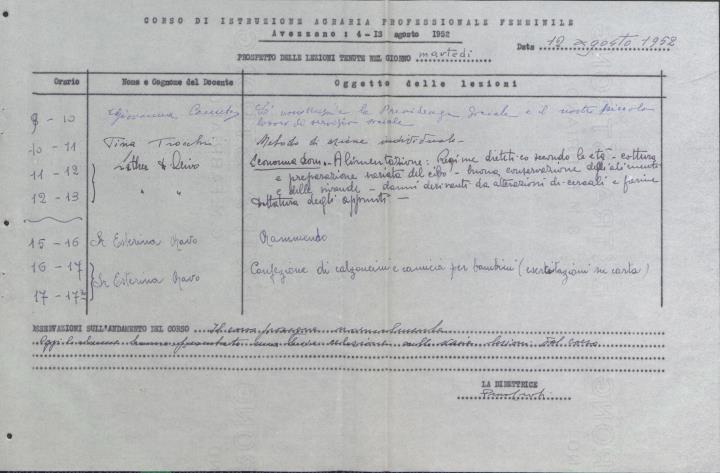 CORSO DI ISTRUZIONE AGRARIA PROFESSIONALE FEMMINILE
Avezzano: 4 - 13 agosto 1952
Data 12 agosto 1952
PROSPETTO DELLE LEZIONI TENUTE NEL GIORNO martedì
Orario Nome e Cognome del Docente Oggetto delle lezioni
9 - 10 Giovanna la Previdenza sociale e il nostro piccolo
lavoro di servizio sociale
10 - 11 Tina Metodo di azione individuale -
11 - 12 Economia Dom. - Alimentazione: Regime dietetico secondo le età - cottura
e preparazione variata del cibo - buona conservazione degli alimenti
12 - 13 " " e delle vivande - danni derivanti da alterazioni di cereali e farine
Dettatura degli appunti -
15 - 16 Sr Esterina Ravo Rammendo
16 - 17 Sr Esterina Ravo Confezione di calzoncini e camicia per bambini (esercitazioni su carta)
17 - 17
OSSERVAZIONI SULL'ANDAMENTO DEL CORSO Il corso prosegue normalmente
Oggi le alunne hanno presentato una breve relazione sulle varie lezioni del corso
LA DIRETTRICE